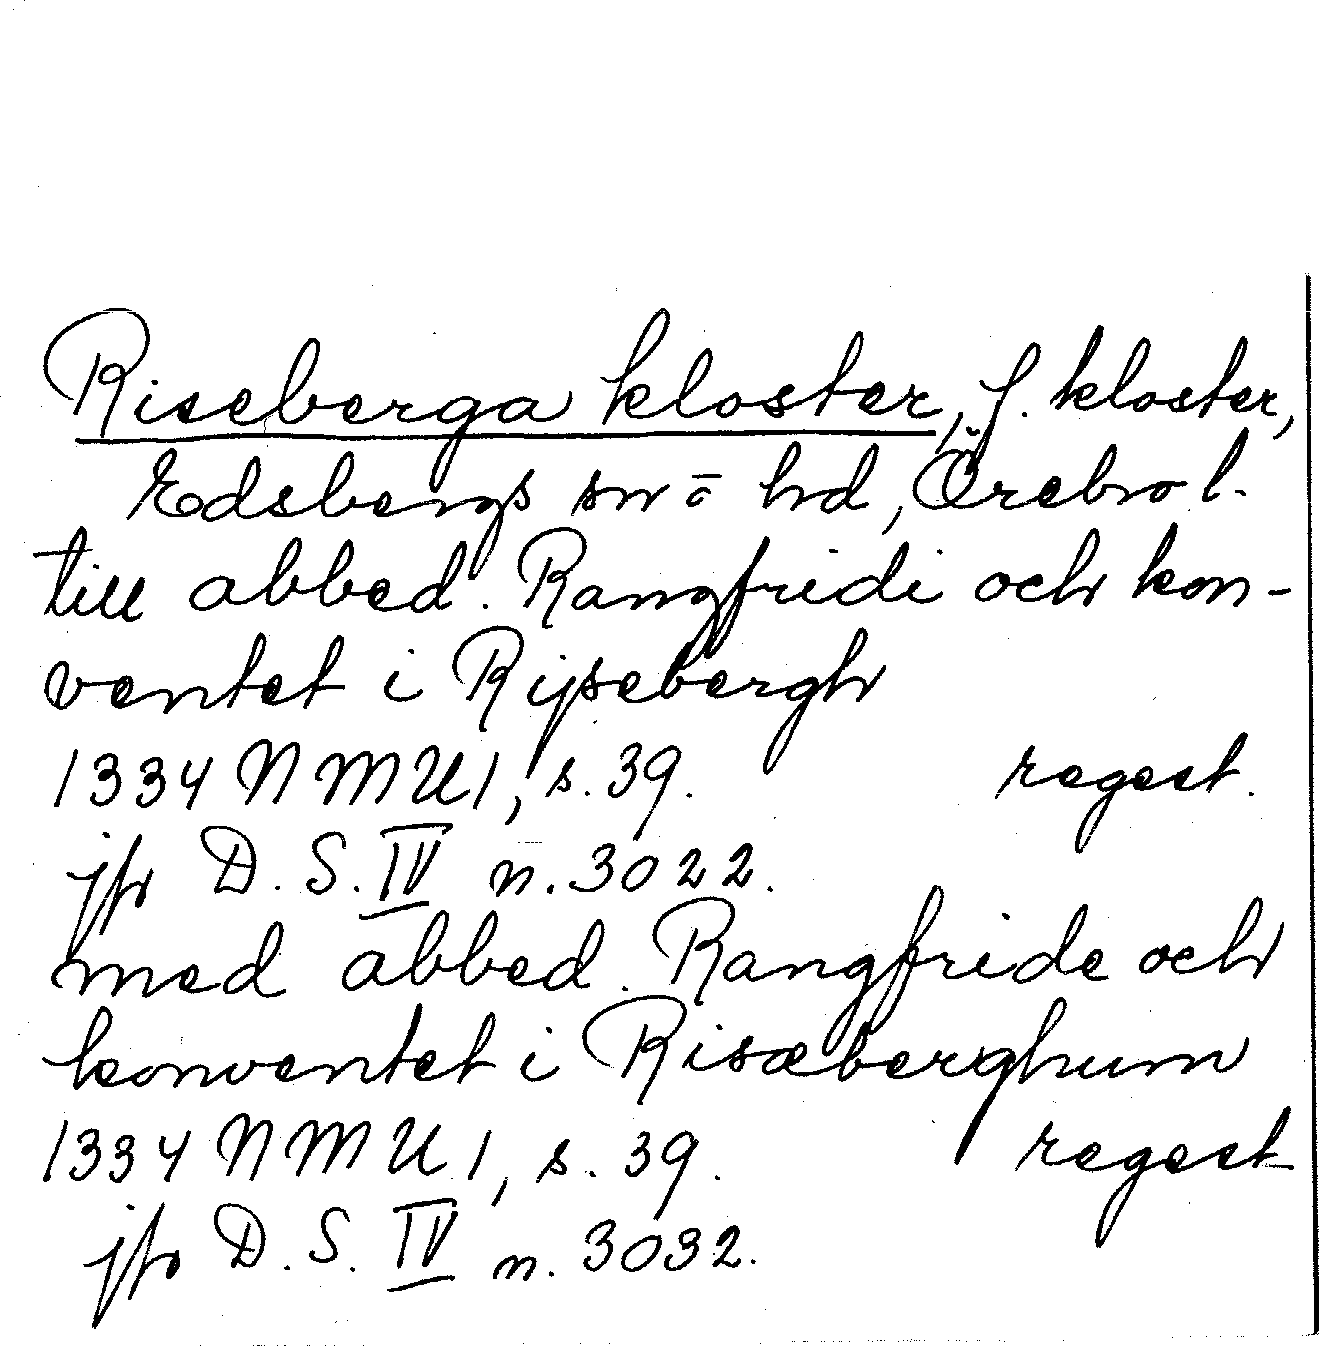 Riseberga kloster, f. kloster,
Edsbergs sn o hd, Örebro l.
till abbed. Rangfridi och kon-
ventet i Rijsebergh
1334 NMU1, s. 39. regest.
jfr D. S. IV n. 3022.
med abbed. Rangfride och
konventet i Risæberghum
1334 NMU 1, s. 39. regest
jfr D. S. IV n. 3032.